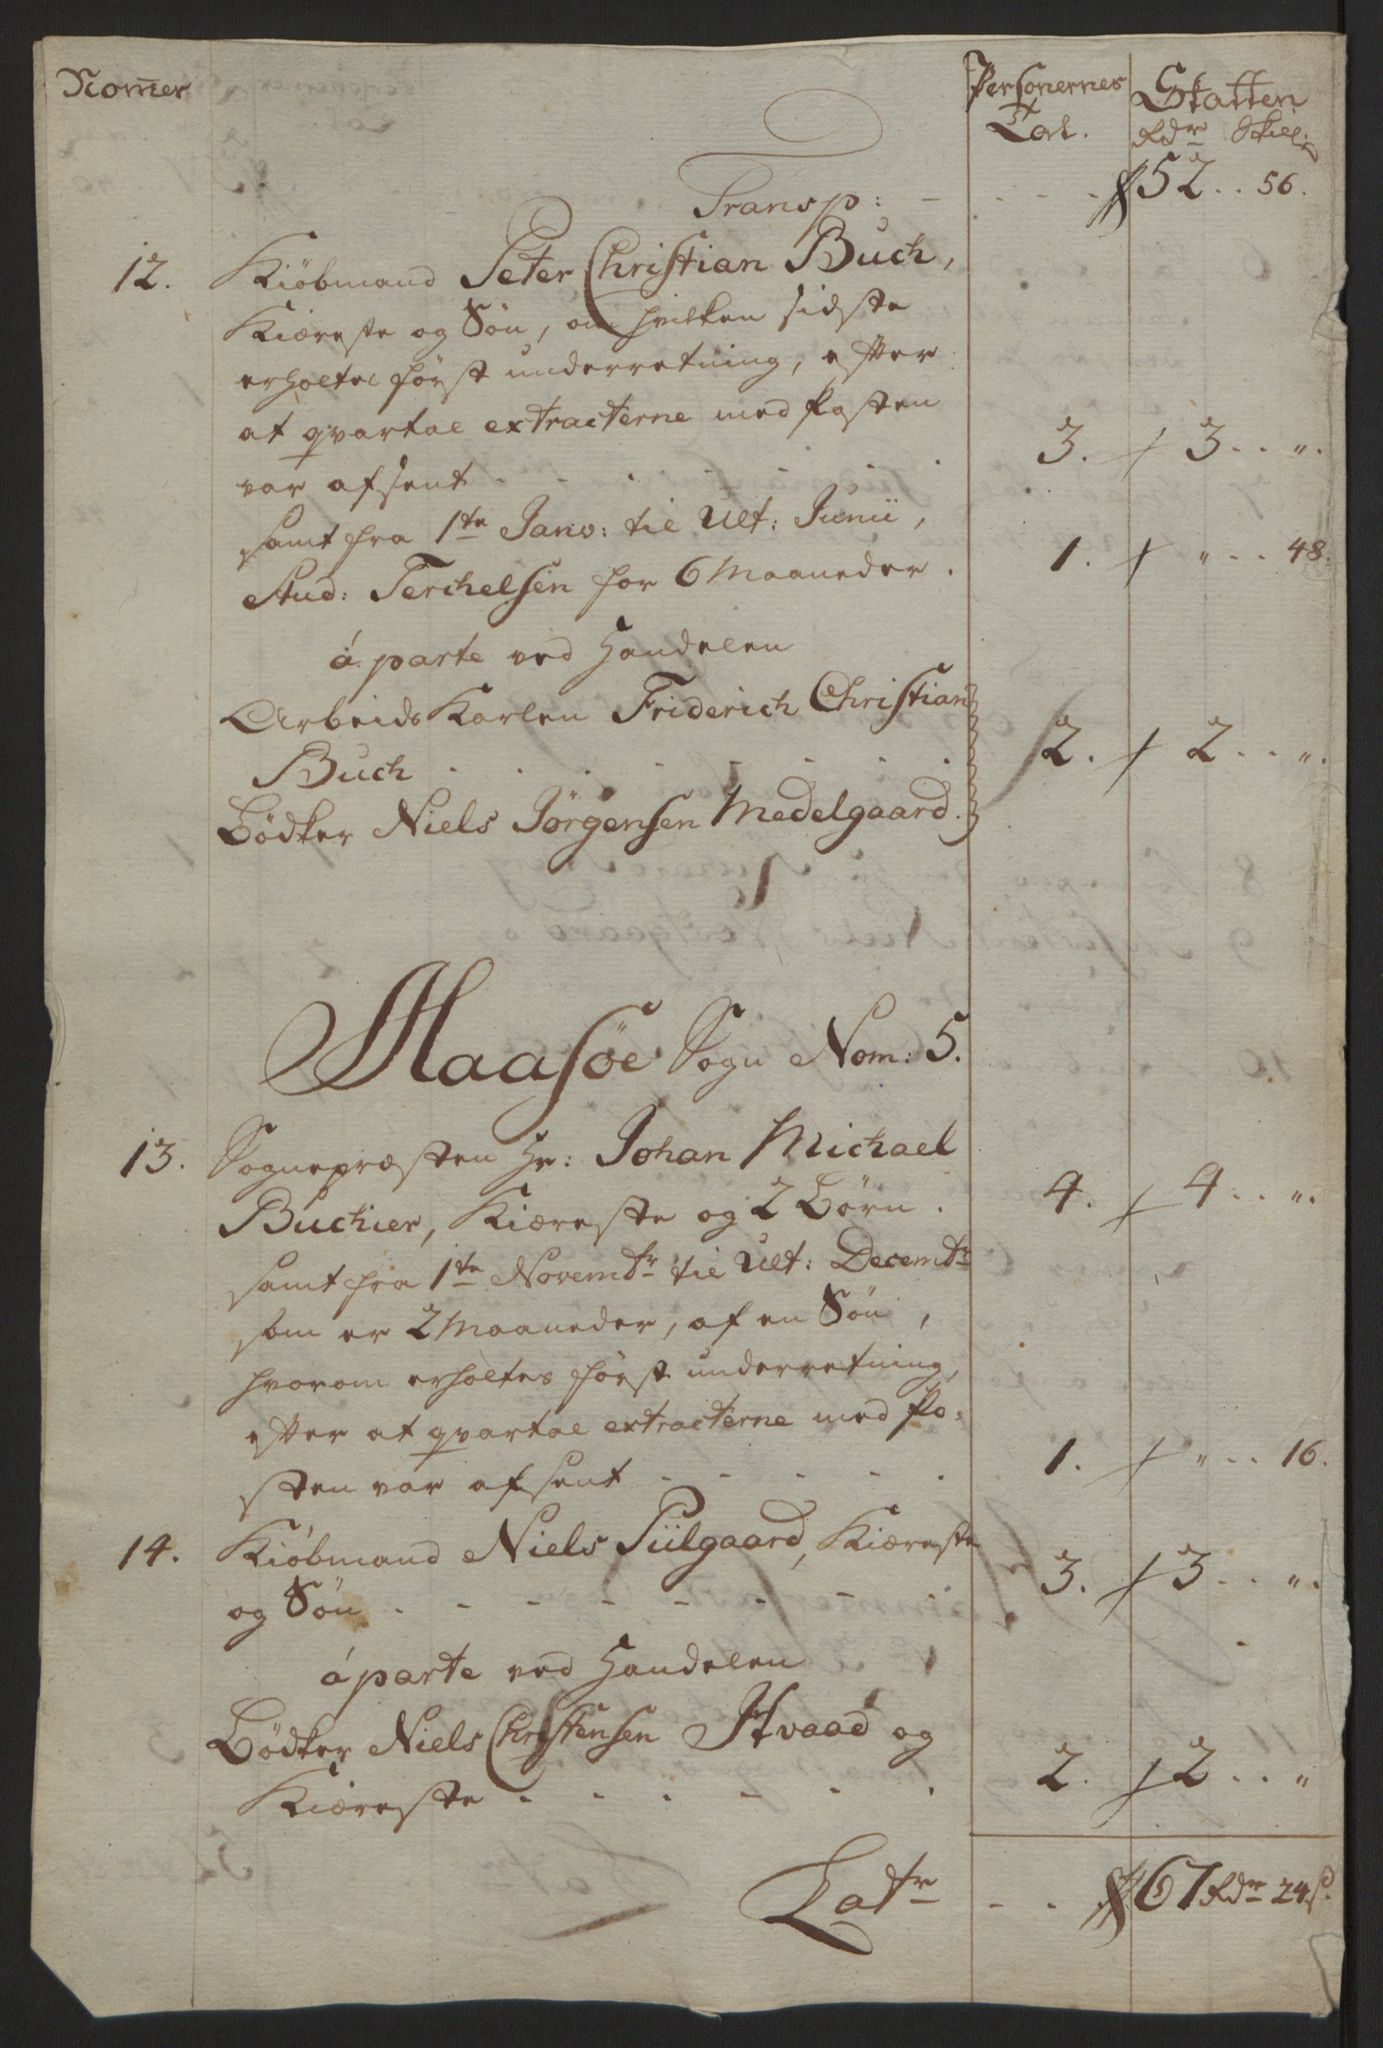 Nom̄er
Personernes Tal.
Skatten
Rdr Skill:
Transp: - - - - 52 .. 56.
12. Kiöbmand Peter Christian Buch,
Kiæreste og Sön, om hvilken sidste
erholtes först underretning, efter
at qvartal extracterne med Posten
var afsent . . . . . . . 3. 3 .. ".
samt fra 1te Janv: til Ult: Junii,
Stud: Terchelsen for 6 Maaneder. 1. " .. 48.
á parte ved Handelen
Arbeids Karlen Friderich Christian
Buch . . . . . . . 2. 2 .. ".
Bödker Niels Jörgensen Medelgaard.
Maasöe Sogn Nom: 5.
13. Sognepræsten Hr: Johan Michael
Buchier, Kiæreste og 2 Börn. 4. 4 .. ".
samt fra 1te Novembr til Ult: Decembr
som er 2 Maaneder, af en Sön,
hvorom erholtes först underretning,
efter at qvartal extracterne med Po-
sten var afsent . . . . . 1. " .. 16.
14. Kiöbmand Niels Piilgaard, Kiæreste
og Sön . - - - - - - - . 3. 3 .. ".
á parte ved Handelen
Bödker Niels Christensen Hvaad og
Kiæreste . . . . . . 2. 2 .. "
Latr - . . 67 Rdr 24 s.